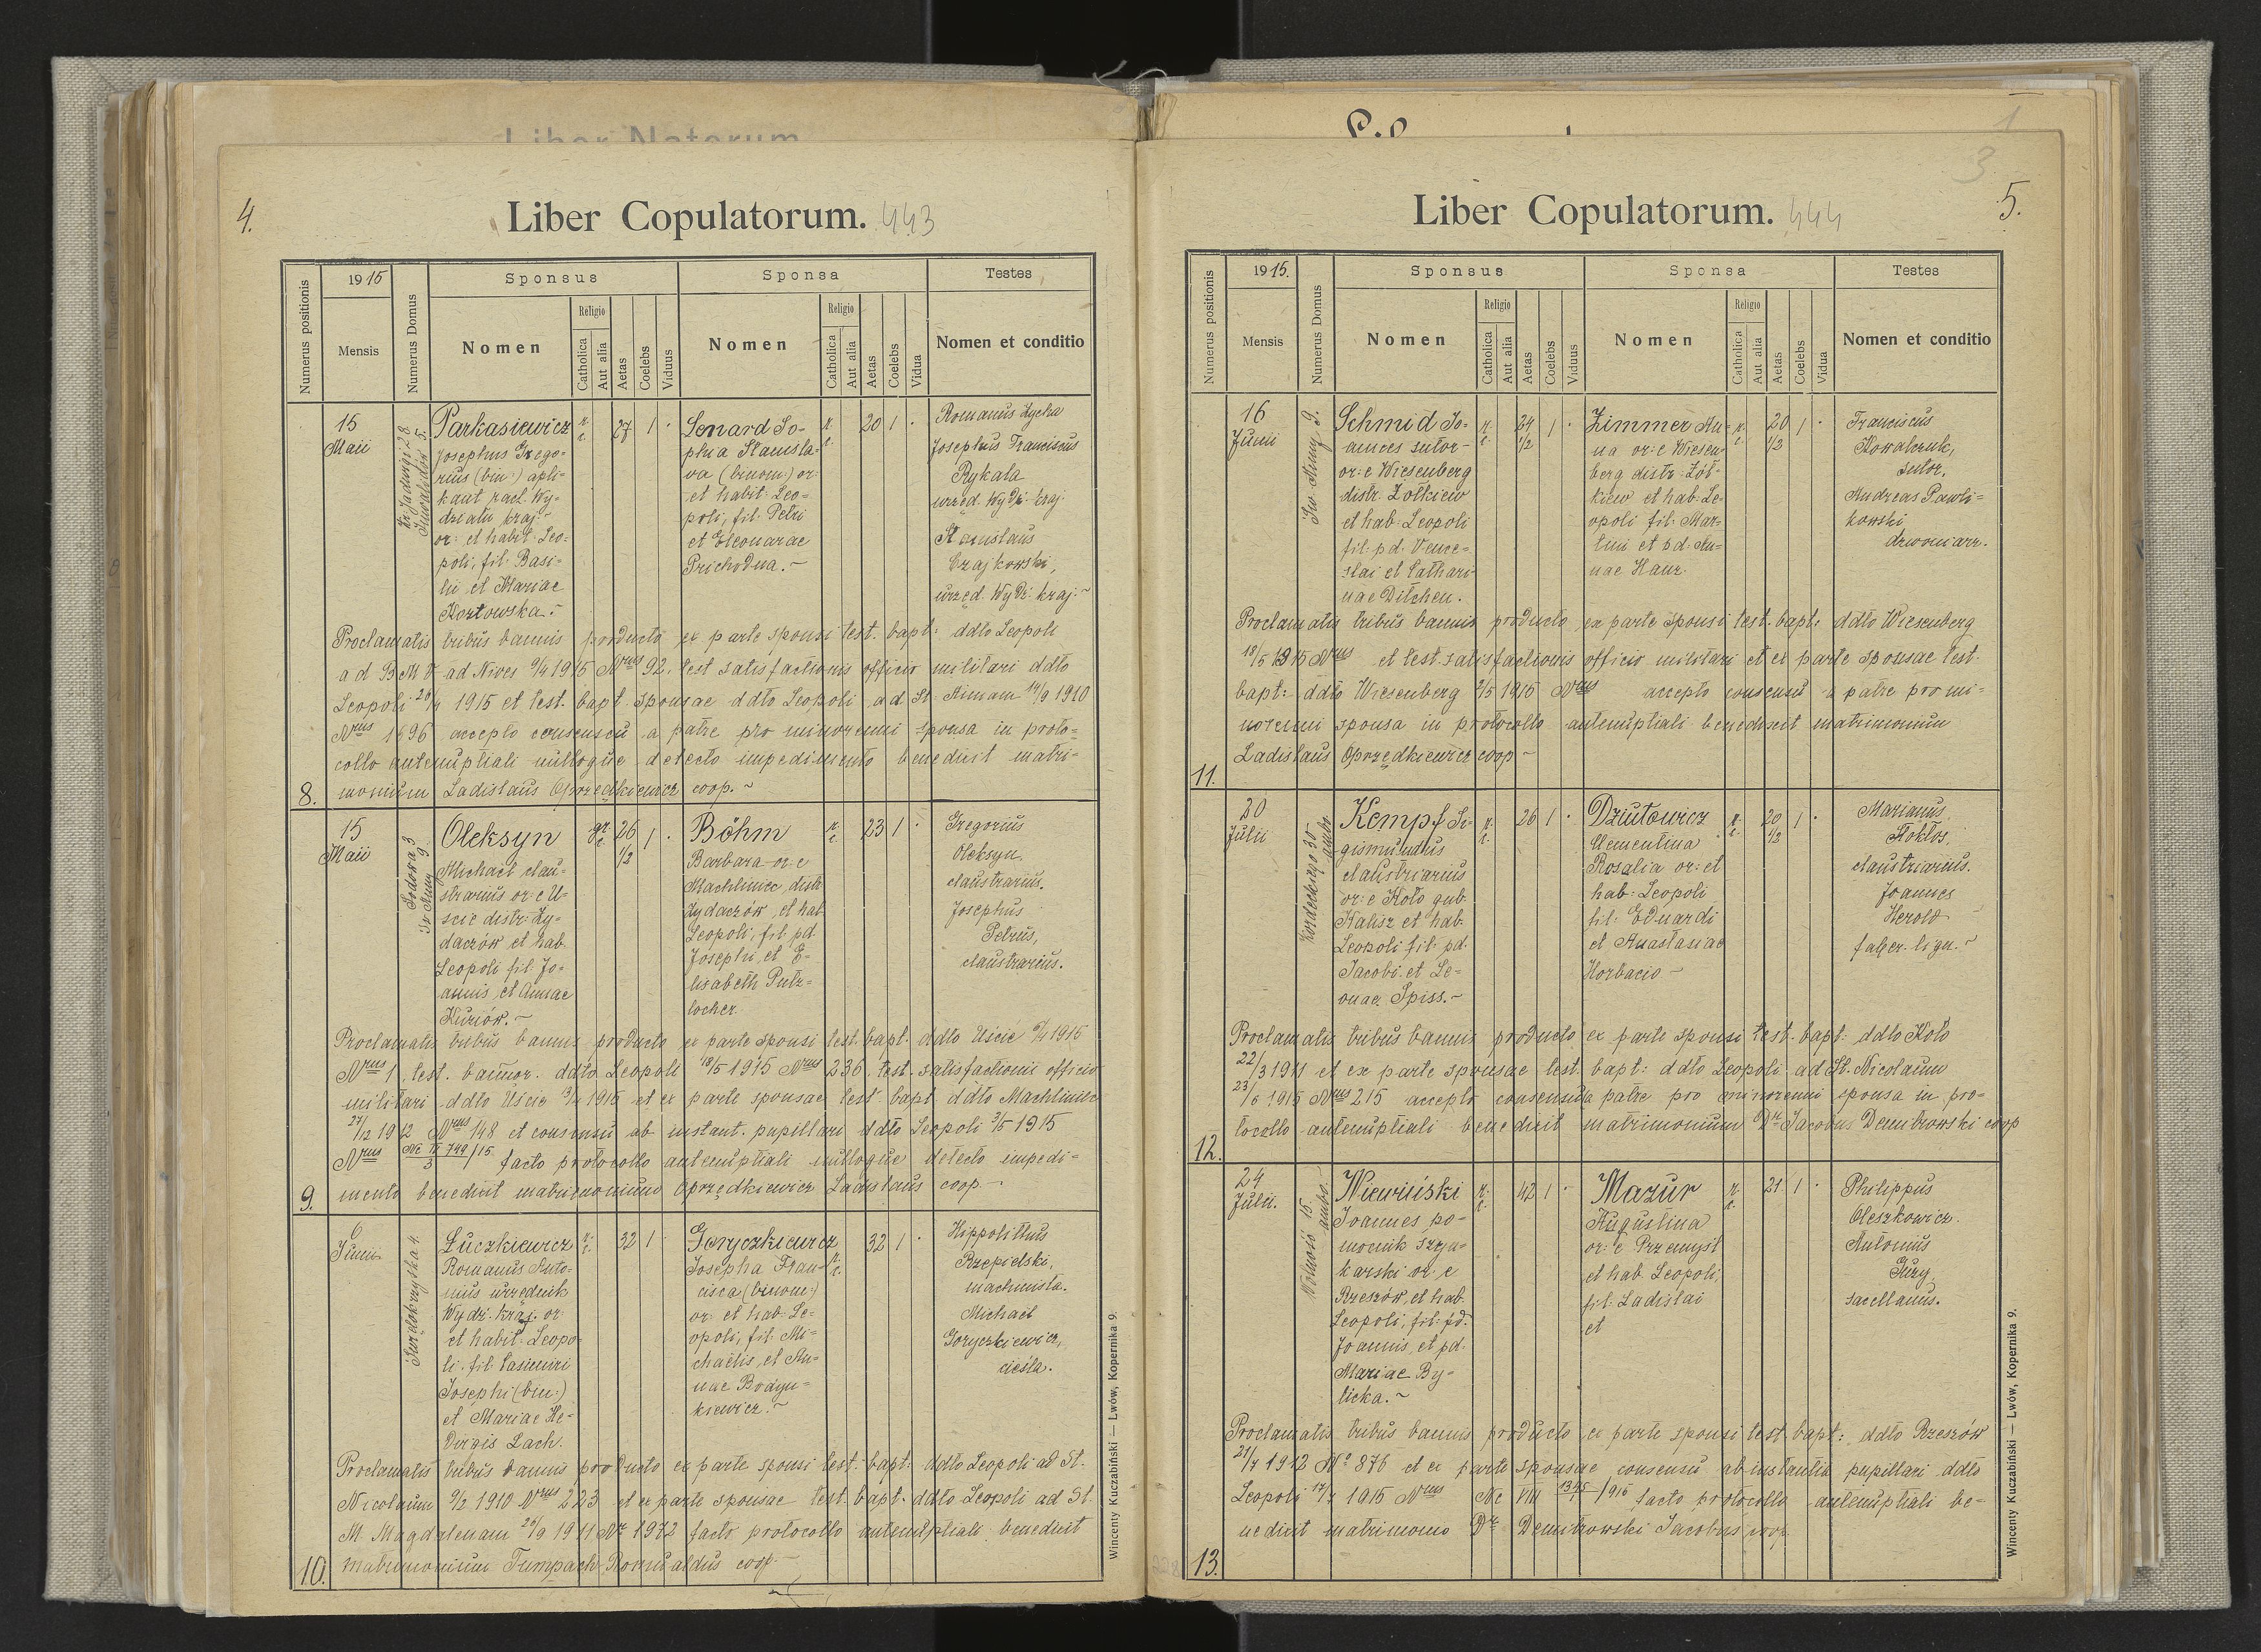 Liber Natorum
4.
Liber Copulatorum. 443
Numerus positionis
1915
Mensis
Numerus Domus
Sponsus
Nomen
Religio
Catholica
Aut alia
Aetas
Coelebs
Viduus
Sponsa
Nomen
Religio
Catholica
Aut alia
Aetas
Coelebs
Vidua
Testes
Nomen et conditio
15
Maii
Kr. Jadwigi 28
Inwalidów 5.
Parkasiewicz
Josephus Grego=
rius (bin:) apli=
kant rach. Wy=
działu kraj. ~
or: et habit. Leo=
poli, fil. Basi=
lii et Mariae
Kozłowska. ~
r. c.
27 1 ·
Lenard So=
phia Stanisla=
va (binom:) or:
et habit: Leo=
poli, fil. Petri
et Eleonorae
Prichodna. ~
r. c.
20 1 ·
Romanus Zycha
Josephus Franciscus
Rykala
urzęd. Wydz. kraj.
Stanislaus
Czajkowski,
urzęd. Wydz. kraj. ~
Proclamatis tribus bannis producto ex parte sponsi test. bapt. ddto Leopoli
ad B M V ad Nives 9/4 1915 Nrus 92. test satisfactionis officio militari ddto
Leopoli 26/4 1915 et test. bapt. sponsae ddto Leopoli ad St. Annam 14/9 1910
Nrus 1696 accepto consensu a patre pro minorenni sponsa in proto=
collo antenuptiali nulloque detecto impedimento benedixit matri=
8. monium Ladislaus Oprzędkiewicz coop. ~
15
Maii
Sadowa 3
Sr Anny 9
Oleksyn
Michael clau=
strarius or: e U=
scie distr: Zy=
daczów et hab.
Leopoli fil. Jo=
annis et Annae
Kuriów. ~
gr. c.
26 1/2 1 ·
Böhm
Barbara or: e
Machliniec distr
Zydaczów et hab
Leopoli, fil. pd.
Josephi, et E=
lisabeth Putz=
locher.
r. c.
23 1 ·
Gregorius
Oleksyn
claustrarius.
Josephus
Petrus,
claustrarius.
Proclamatis tribus bannis producto ex parte sponsi test. bapt. ddto Uscie 9/4 1915
Nrus 1, test. bannor. ddto Leopoli 18/5 1915 Nrus 236, test. satisfactionis officio
militari ddto Uscie 13/4 1915 et ex parte sponsae test bapt ddto Machliniec
27/12 1912 Nrus 148 et consensu ab instant. pupillari ddto Leopoli 3/5 1915
Nrus Nc IV 749/15 3 facto protocollo antenuptiali nulloque detecto impedi=
9. mento benedixit matrimonium Oprzędkiewicz Ladislaus coop. ~
6
Junii
Swędokrzyska 4.
Łuczkiewicz
Romanus Anto=
nius urzędnik
Wydz. kraj. or:
et habit. Leopo=
li. fil. Casimiri
Josephi (bin:)
et Mariae He=
dvigis Lach.
r. c.
32 1 ·
Goryczkiewicz
Josepha Fran=
cisca (binom:)
or: et hab. Le=
opoli, fil. Mi=
chaelis, et An=
nae Bodyn=
kiewicz. ~
r. c.
32 1 ·
Hippolithus
Rzepielski,
machinista.
Michael
Goryczkiewicz,
ciesla.
Proclamatis tribus bannis producto ex parte sponsi test. bapt. ddto Leopoli ad St.
Nicolaum 9/2 1910 Nrus 223 et ex parte sponsae test. bapt. ddto Leopoli ad St.
M Magdalenam 26/9 1911 Nr 1972 facto protocollo antenuptiali benedixit
10. matrimonium Tumpach Romualdus coop. ~
Wincenty Kuczabiński — Lwów, Kopernika 9.
1
3
5.
Liber Copulatorum. 444
Numerus positionis
1915.
Mensis
Numerus Domus
Sponsus
Nomen
Religio
Catholica
Aut alia
Aetas
Coelebs
Viduus
Sponsa
Nomen
Religio
Catholica
Aut alia
Aetas
Coelebs
Vidua
Testes
Nomen et conditio
16
Junii
Sw. Anny 9.
Schmid Jo=
annes sutor ~
or: e Wiesenberg
distr. Żołkiew
et hab. Leopoli
fil: pd. Vence=
slai et Cathari
nae Ditchen.
r. c.
24 1/2 1 ·
Zimmer An=
na or: e Wiesen
berg distr: Żoł=
kiew et hab. Le=
opoli fil. Mar=
tini et pd. An=
nae Hanz.
r. c.
20 1/2 1 ·
Franciscus
Kowalczuk,
sutor.
Andreas Pawli=
kowski
dzwoniarz.
Proclamatis tribus bannis producto ex parte sponsi test. bapt. ddto Wiesenberg
18/5 1915 Nrus et test. satisfactionis officio militari et ex parte sponsae test.
bapt: ddto Wiesenberg 2/5 1915 Nrus accepto consensu a patre pro mi=
norenni sponsa in protocollo antenuptiali benedixit matrimonium
Ladislaus Oprzędkiewicz coop ~
11.
20
Julii
Kordeckiego 30
ambo
Kempf Si=
gismundus
claustriarius
or: e Koło gub.
Kalisz et hab.
Leopoli fil. pd.
Jacobi et Le=
onae Spiss. ~
r. c.
26 1 ·
Dziutowicz
Clementina
Rosalia or: et
hab: Leopoli
fil: Eduardi
et Anastasiae
Horbacio ~
r. c.
20 1/2 1 ·
Marianus
Stokłos,
claustriarius.
Joannes
Herold
faber. lign. ~
Proclamatis tribus bannis producto ex parte sponsi test. bapt: ddto Koło
22/3 1911 et ex parte sponsae test. bapt: ddto Leopoli ad St. Nicolaum
23/6 1915 Nrus 215 accepto consensu a patre pro minorenni sponsa in pro=
tocollo antenuptiali benedixit matrimonium Dr Jacobus Demitrowski coop
12.
24
Julii.
Wolność 15
ambo.
Niewiński
Joannes po=
mocnik szyn=
karski or: e
Rzeszów, et hab.
Leopoli, fil. pd.
Joannis, et pd.
Mariae By=
licka. ~
r. c.
42 1 ·
Mazur
Augustina
or: e Przemysl
et hab. Leopoli,
fil: Ladislai
et
r. c.
21 1 ·
Philippus
Oleszkowicz.
Antonius
Guzy,
sacellanus.
Proclamatis tribus bannis producto ex parte sponsi test. bapt: ddto Rzeszów
21/7 1912 No 876 et ex parte sponsae consensu ab instantia pupillari ddto
Leopoli 17/7 1915 Nrus Nc VIII 1345/915 facto protocollo antenuptiali be=
nedixit matrimonio Dr Demitrowski Jacobus coop.
13.
Wincenty Kuczabiński — Lwów, Kopernika 9.